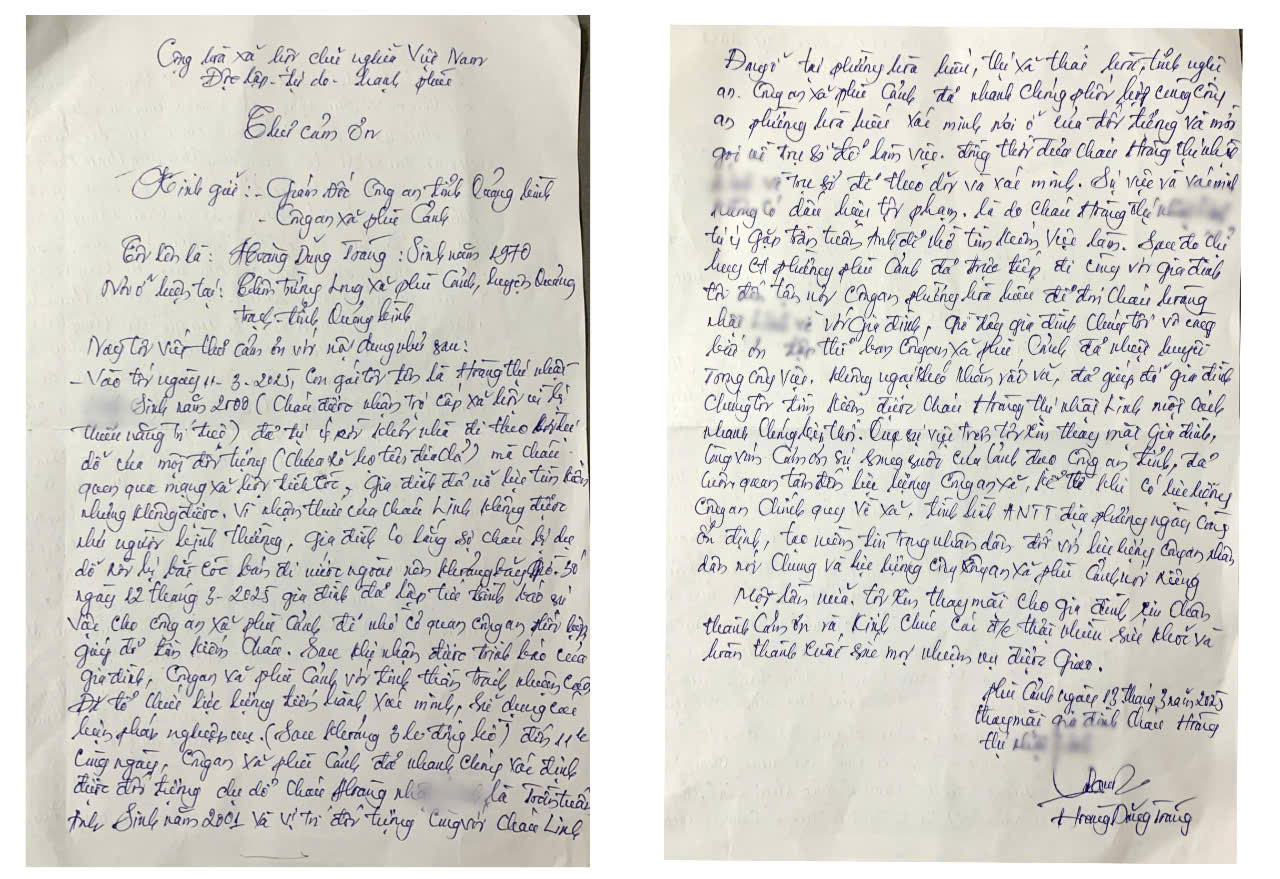 Cộng hòa xã hội chủ nghĩa Việt Nam
Độc lập - tự do - hạnh phúc
Thư cảm ơn
Kính gửi: - Giám đốc Công an tỉnh Quảng Bình
- Công an xã phù Cảnh
Tôi tên là: Hoàng Dũng Trang: Sinh năm 1970
Nơi ở hiện tại: Xã phù Cảnh, huyện Quảng
trạch - tỉnh Quảng Bình
Nay tôi viết thư cảm ơn với nội dung như sau:
- Vào tối ngày 11-3-2025, con gái tôi tên là Hoàng thị nhật
Sinh năm 2000 (Cháu được nhận trợ cấp xã hội vì bị
thiểu năng trí tuệ) đã tự ý rời khỏi nhà đi theo lời dụ
dỗ của một đối tượng (chưa rõ họ tên địa chỉ) mà cháu
quen qua mạng xã hội tiktok, Gia đình đã nỗ lực tìm kiếm
nhưng không được. Vì nhận thức của cháu Linh không được
như người bình thường, gia đình lo lắng sợ cháu bị dụ
dỗ rồi bị bắt cóc bán đi nước ngoài nên khoảng 30
ngày 12 tháng 3-2025 gia đình đã lập tức trình báo sự
việc cho công an xã phù Cảnh để nhờ cơ quan công an phối hợp
giúp đỡ tìm kiếm cháu. Sau khi nhận được trình báo của
gia đình, Công an xã phù Cảnh với tinh thần trách nhiệm cao
đã tổ chức lực lượng tiến hành xác minh, sử dụng các
biện pháp nghiệp vụ. (Sau khoảng 3 đồng hồ) đến 11h
cùng ngày, Công an xã phù Cảnh đã nhanh chóng xác định
được đối tượng dụ dỗ cháu Hoàng là Trần tuấn
Anh Sinh năm 2001 và vị trí đối tượng cùng với cháu Linh
Đang ở tại phường hòa hiếu, thị xã thái hòa, tỉnh nghệ
an. Công an xã phù Cảnh đã nhanh chóng phối hợp cùng công
an phường hòa hiếu xác minh nơi ở của đối tượng và mời
gọi về trụ sở để làm việc. đồng thời đưa cháu Hoàng thị nhật
về trụ sở để theo dõi và xác minh. Sự việc và xác minh
không có dấu hiệu tội phạm. là do cháu Hoàng thị
tự ý gặp trần tuấn Anh để nhờ tìm kiếm việc làm. Sau đó chỉ
huy CA phù Cảnh đã trực tiếp đi cùng với gia đình
tôi tận nơi Công an phường hòa hiếu để đón cháu hoàng
nhật về với Gia đình, gia đình chúng tôi vô cùng
biết ơn tập thể ban Công an xã phù Cảnh đã nhiệt huyết
trong công việc. không ngại khó khăn vất vả, đã giúp đỡ gia đình
chúng tôi tìm kiếm được cháu Hoàng thị nhật Linh một cách
nhanh chóng kịp thời. Qua sự việc trên tôi xin thay mặt Gia đình,
Cảm ơn sự sáng suốt của lãnh đạo công an tỉnh, đã
luôn quan tâm đến lực lượng Công an xã, kể từ khi có lực lượng
Công an Chính quy về xã, tình hình ANTT địa phương ngày càng
ổn định, tạo niềm tin trong nhân dân đối với lực lượng Công an nhân
dân nói chung và lực lượng Công an xã phù Cảnh nói riêng
Một lần nữa. tôi xin thay mặt cho gia đình, xin chân
thành cảm ơn và kính chúc các đ/c thật nhiều sức khỏe và
hoàn thành xuất sắc mọi nhiệm vụ được giao.
phù Cảnh ngày 13 tháng 3 năm 2025
thay mặt gia đình cháu Hoàng
thị
Hoàng Dũng Trang